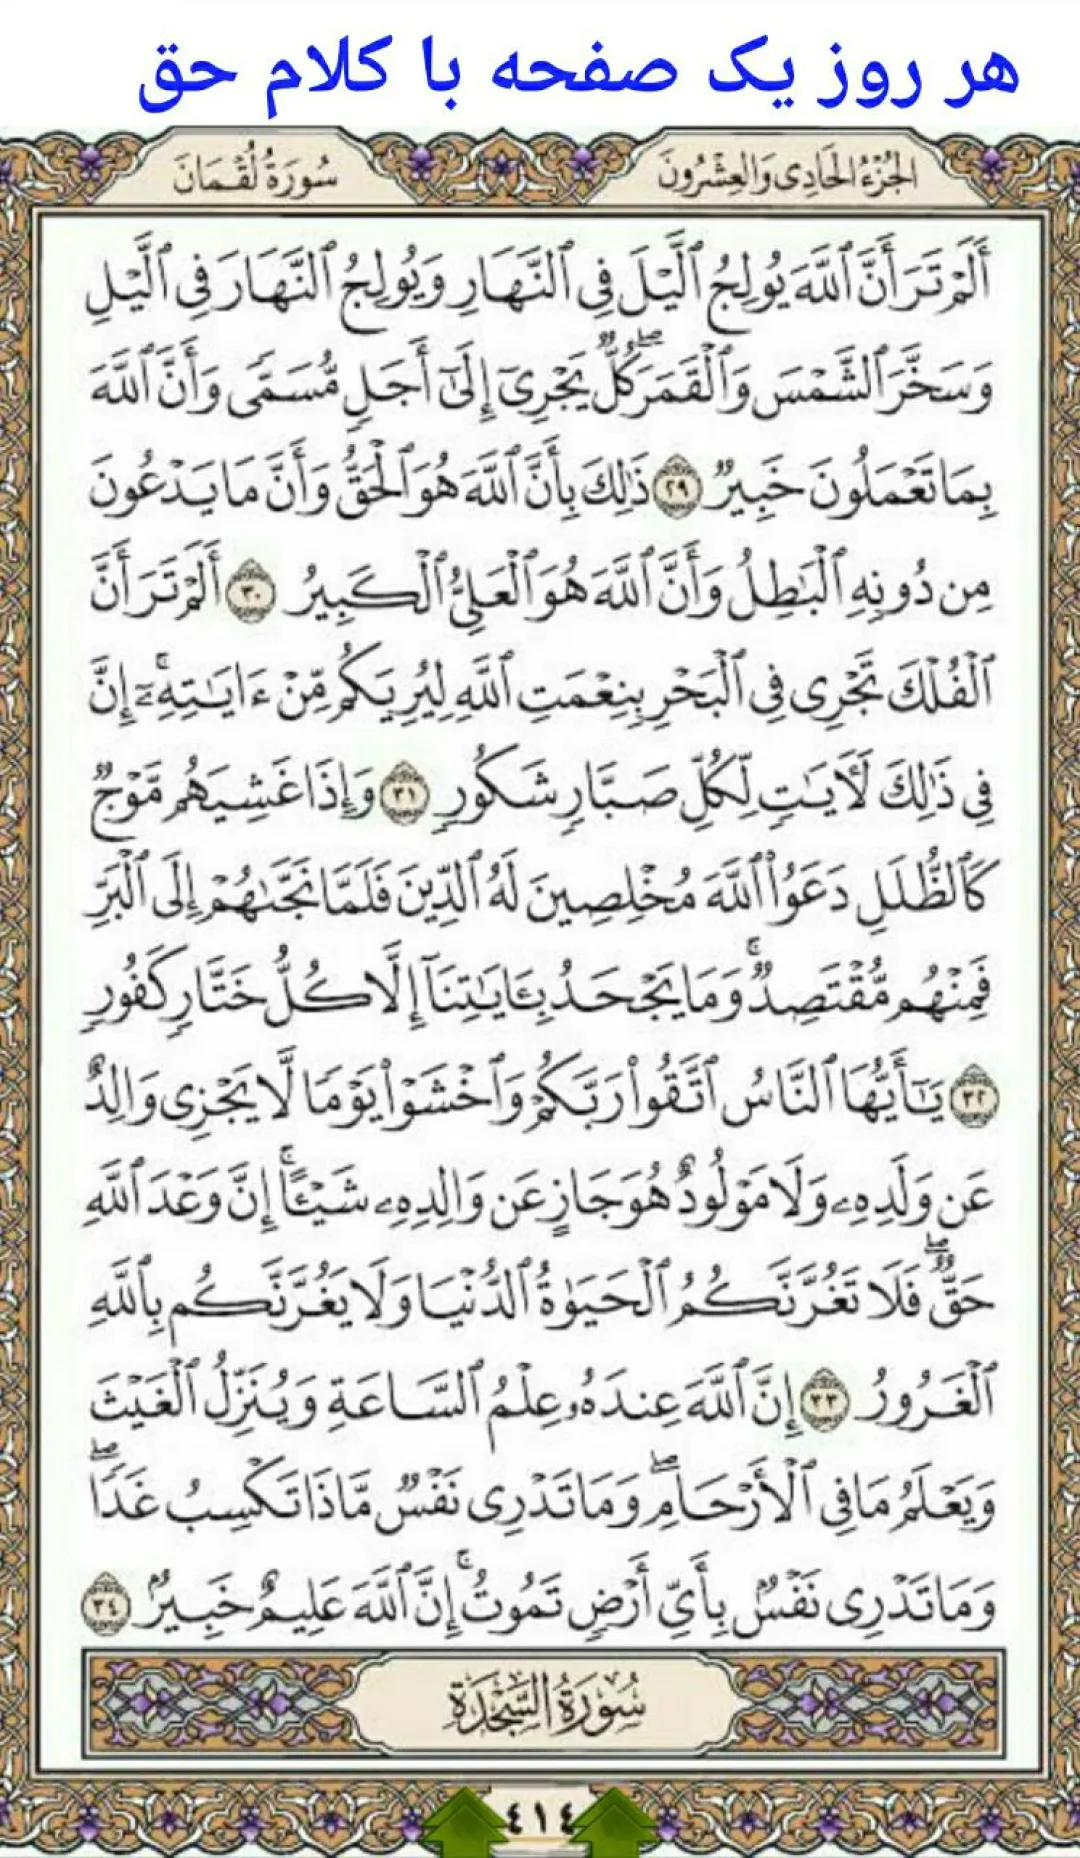 هر روز یک صفحه با کلام حق
الجُزْءُ الحَادِی وَالعِشْرُونَ
سُورَةُ لُقْمَانَ
أَلَمْ تَرَ أَنَّ ٱللَّهَ يُولِجُ ٱلَّيْلَ فِى ٱلنَّهَارِ وَيُولِجُ ٱلنَّهَارَ فِى ٱلَّيْلِ
وَسَخَّرَ ٱلشَّمْسَ وَٱلْقَمَرَۖ كُلٌّ يَجْرِىٓ إِلَىٰٓ أَجَلٍ مُّسَمًّى وَأَنَّ ٱللَّهَ
بِمَا تَعْمَلُونَ خَبِيرٌ ٢٩ ذَٰلِكَ بِأَنَّ ٱللَّهَ هُوَ ٱلْحَقُّ وَأَنَّ مَا يَدْعُونَ
مِن دُونِهِ ٱلْبَٰطِلُ وَأَنَّ ٱللَّهَ هُوَ ٱلْعَلِىُّ ٱلْكَبِيرُ ٣٠ أَلَمْ تَرَ أَنَّ
ٱلْفُلْكَ تَجْرِى فِى ٱلْبَحْرِ بِنِعْمَتِ ٱللَّهِ لِيُرِيَكُم مِّنْ ءَايَٰتِهِۦٓۚ إِنَّ
فِى ذَٰلِكَ لَءَايَٰتٍ لِّكُلِّ صَبَّارٍ شَكُورٍ ٣١ وَإِذَا غَشِيَهُم مَّوْجٌ
كَٱلظُّلَلِ دَعَوُا۟ ٱللَّهَ مُخْلِصِينَ لَهُ ٱلدِّينَ فَلَمَّا نَجَّىٰهُمْ إِلَى ٱلْبَرِّ
فَمِنْهُم مُّقْتَصِدٌۚ وَمَا يَجْحَدُ بِـَٔايَٰتِنَآ إِلَّا كُلُّ خَتَّارٍ كَفُورٍ
٣٢ يَٰٓأَيُّهَا ٱلنَّاسُ ٱتَّقُوا۟ رَبَّكُمْ وَٱخْشَوْا۟ يَوْمًا لَّا يَجْزِى وَالِدٌ
عَن وَلَدِهِۦ وَلَا مَوْلُودٌ هُوَ جَازٍ عَن وَالِدِهِۦ شَيْـًٔاۚ إِنَّ وَعْدَ ٱللَّهِ
حَقٌّۖ فَلَا تَغُرَّنَّكُمُ ٱلْحَيَوٰةُ ٱلدُّنْيَا وَلَا يَغُرَّنَّكُم بِٱللَّهِ
ٱلْغَرُورُ ٣٣ إِنَّ ٱللَّهَ عِندَهُۥ عِلْمُ ٱلسَّاعَةِ وَيُنَزِّلُ ٱلْغَيْثَ
وَيَعْلَمُ مَا فِى ٱلْأَرْحَامِۖ وَمَا تَدْرِى نَفْسٌ مَّاذَا تَكْسِبُ غَدًاۖ
وَمَا تَدْرِى نَفْسٌۢ بِأَىِّ أَرْضٍ تَمُوتُۚ إِنَّ ٱللَّهَ عَلِيمٌ خَبِيرٌۢ ٣٤
سُورَةُ السَّجْدَةِ
٤١٤